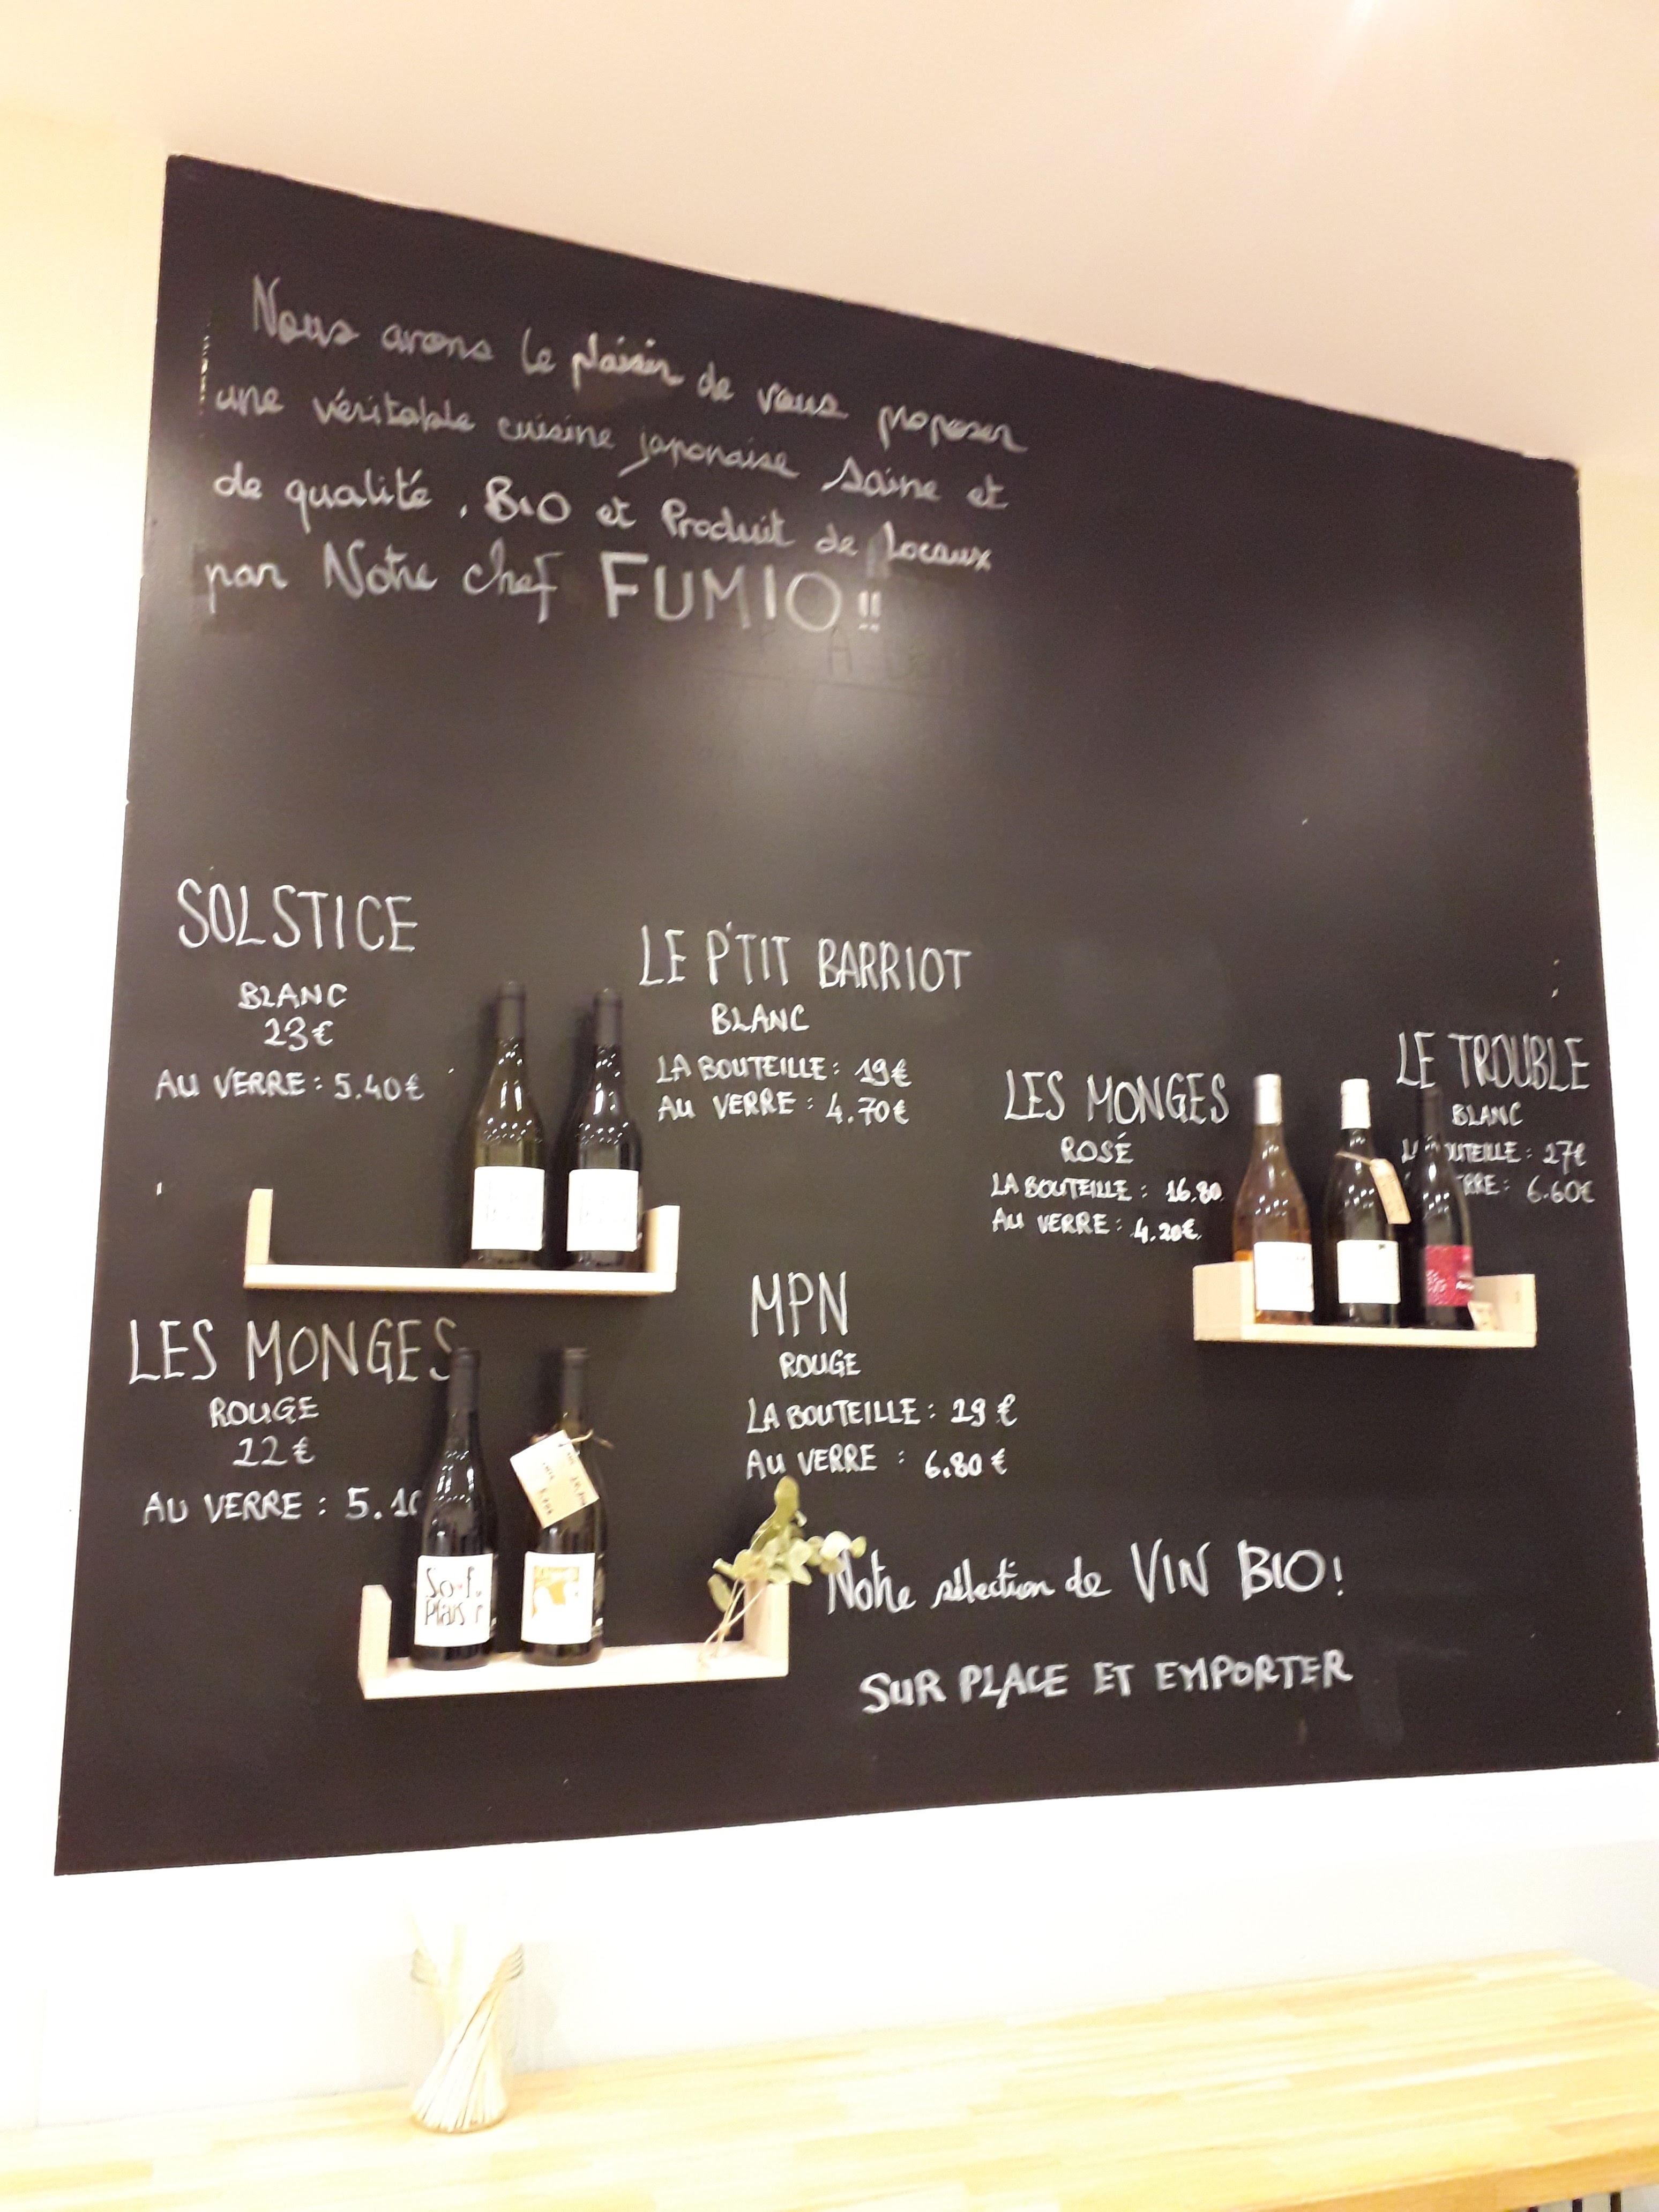 Nous avons le plaisir de vous proposer
une véritable cuisine japonaise saine et
de qualité, BIO et Produit de Locaux
par Notre chef FUMIO !!
SOLSTICE
BLANC
23€
AU VERRE : 5.40€
LE P'TIT BARRIOT
BLANC
LA BOUTEILLE : 19€
AU VERRE : 4.70€
LES MONGES
ROSÉ
LA BOUTEILLE : 16.80
AU VERRE : 4.20€
LE TROUBLE
BLANC
BOUTEILLE : 27€
VERRE : 6.60€
LES MONGES
ROUGE
22€
AU VERRE : 5.10
MPN
ROUGE
LA BOUTEILLE : 29€
AU VERRE : 6.80€
So.f.
Plais r
Notre sélection de VIN BIO!
SUR PLACE ET EMPORTER